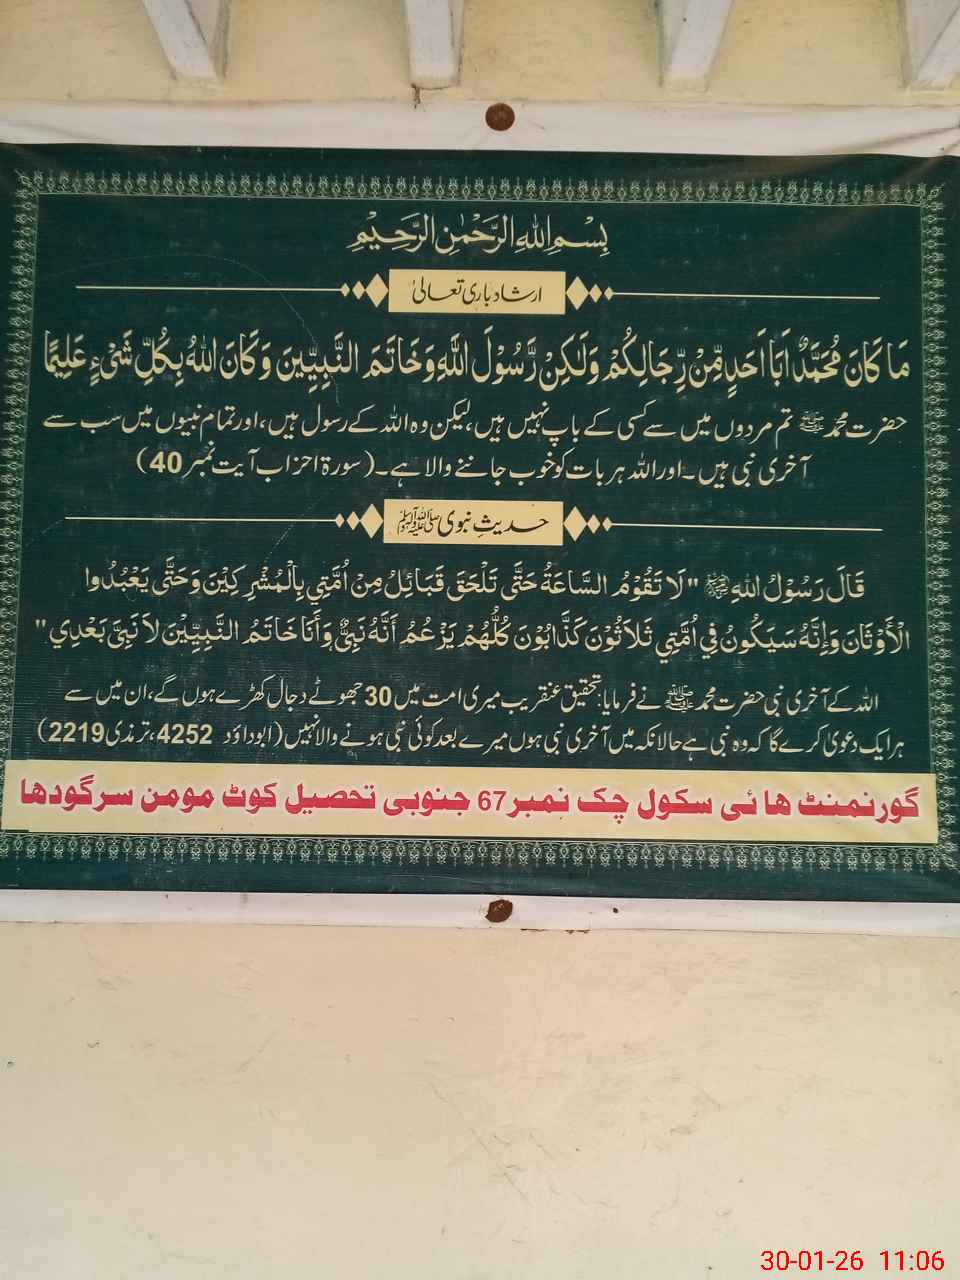 بِسْمِ اللهِ الرَّحْمٰنِ الرَّحِيْمِ
ارشاد باری تعالیٰ
مَا كَانَ مُحَمَّدٌ اَبَا اَحَدٍ مِّنْ رِّجَالِكُمْ وَلٰكِنْ رَّسُوْلَ اللّٰهِ وَخَاتَمَ النَّبِيّٖنَ وَكَانَ اللّٰهُ بِكُلِّ شَيْءٍ عَلِيْمًا
حضرت محمد ﷺ تم مردوں میں سے کسی کے باپ نہیں ہیں، لیکن وہ اللہ کے رسول ہیں، اور تمام نبیوں میں سب سے
آخری نبی ہیں۔ اور اللہ ہر بات کو خوب جاننے والا ہے۔ (سورۃ احزاب آیت نمبر 40)
حدیثِ نبوی ﷺ
قَالَ رَسُوْلُ اللهِ ﷺ "لَا تَقُوْمُ السَّاعَةُ حَتَّى تَلْحَقَ قَبَائِلُ مِنْ اُمَّتِي بِالْمُشْرِكِيْنَ وَحَتَّى يَعْبُدُوا
الْأَوْثَانَ وَإِنَّهُ سَيَكُونُ فِي اُمَّتِي ثَلَاثُوْنَ كَذَّابُوْنَ كُلُّهُمْ يَزْعُمُ أَنَّهُ نَبِيٌّ وَأَنَا خَاتَمُ النَّبِيِّيْنَ لَا نَبِيَّ بَعْدِي"
اللہ کے آخری نبی حضرت محمد ﷺ نے فرمایا: تحقیق عنقریب میری امت میں 30 جھوٹے دجال کھڑے ہوں گے، ان میں سے
ہر ایک دعویٰ کرے گا کہ وہ نبی ہے حالانکہ میں آخری نبی ہوں میرے بعد کوئی نبی ہونے والا نہیں (ابوداؤد 4252، ترمذی 2219)
گورنمنٹ ہائی سکول چک نمبر 67 جنوبی تحصیل کوٹ مومن سرگودھا
30-01-26 11:06